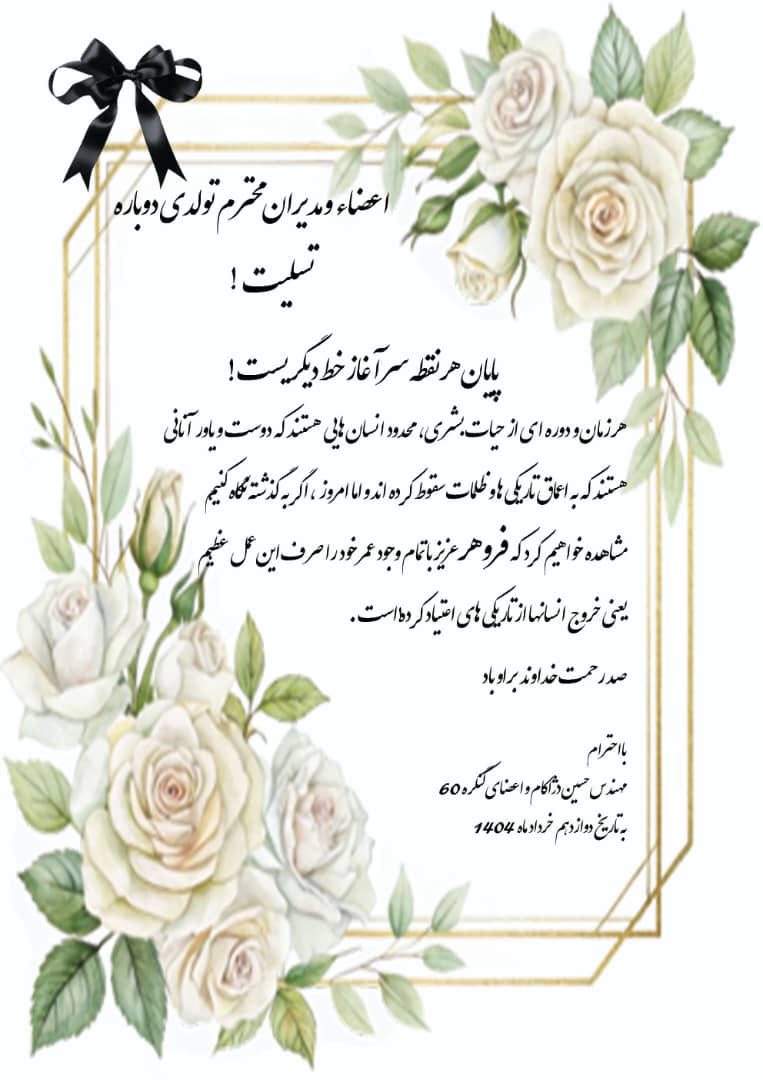 اعضاء و مدیران محترم تولدی دوباره
تسلیت !
پایان هر نقطه سرآغاز خط دیگریست!
هر زمان و دوره ای از حیات بشری، محدود انسان هایی هستند که دوست و یاور آنانی
هستند که به اعماق تاریکی ها و ظلمات سقوط کرده اند و اما امروز ، اگر به گذشته نگاه کنیم
مشاهده خواهیم کرد که فروهر عزیز با تمام وجود عمر خود را صرف این عمل عظیم
یعنی خروج انسانها از تاریکی های اعتیاد کرده است .
صد رحمت خداوند بر او باد
با احترام
مهندس حسین دژاکام و اعضای کنگره 60
به تاریخ دوازدهم خرداد ماه 1404